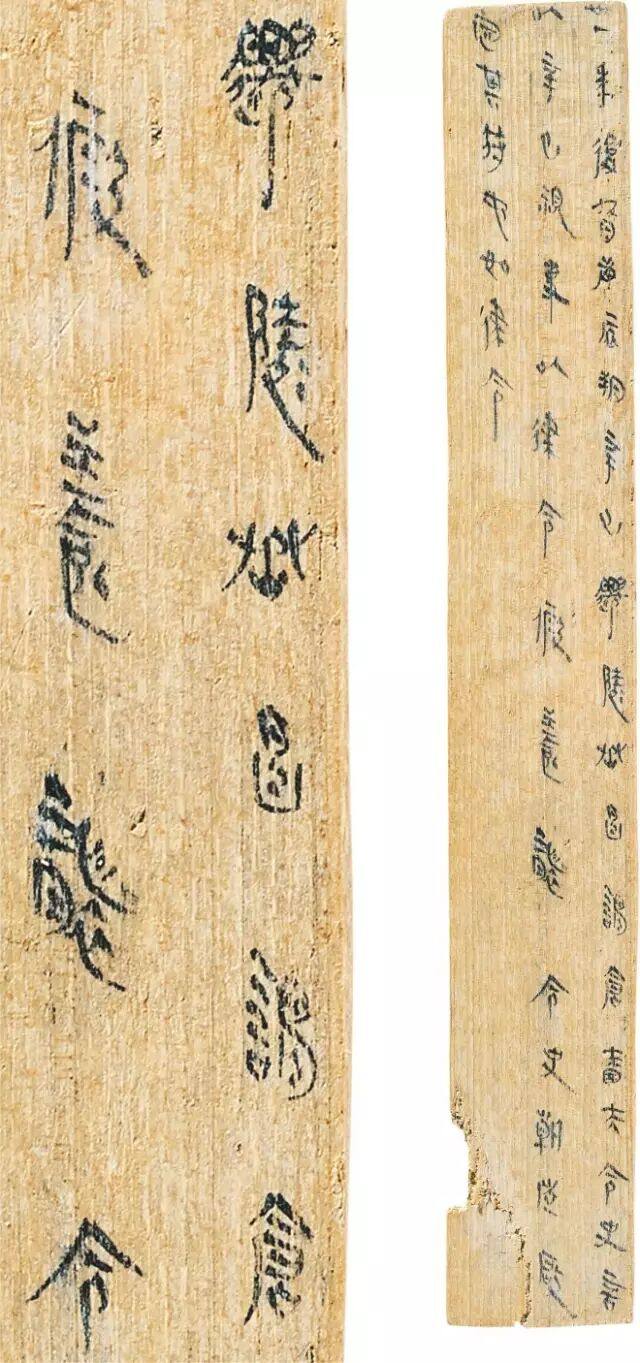 卅一年後九月庚辰朔辛巳遷陵丞昌謂倉嗇夫令史言
以辛巳視事以律令假養襲令史朝走啟
定其符它如律令
遷陵丞昌謂倉
假養襲令